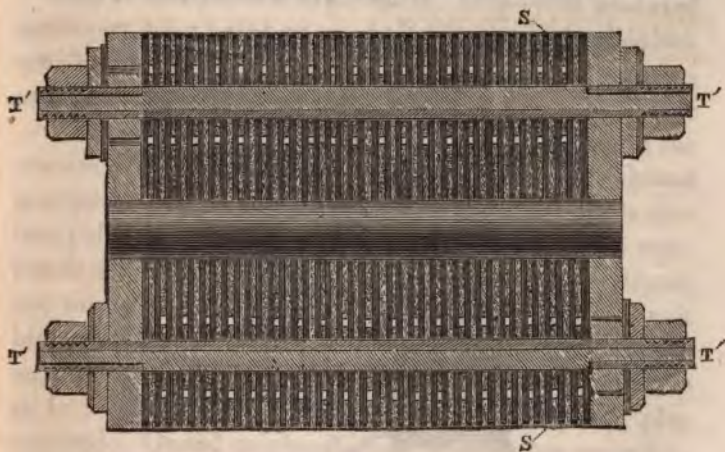 S
T′ T′
T′ T′
S